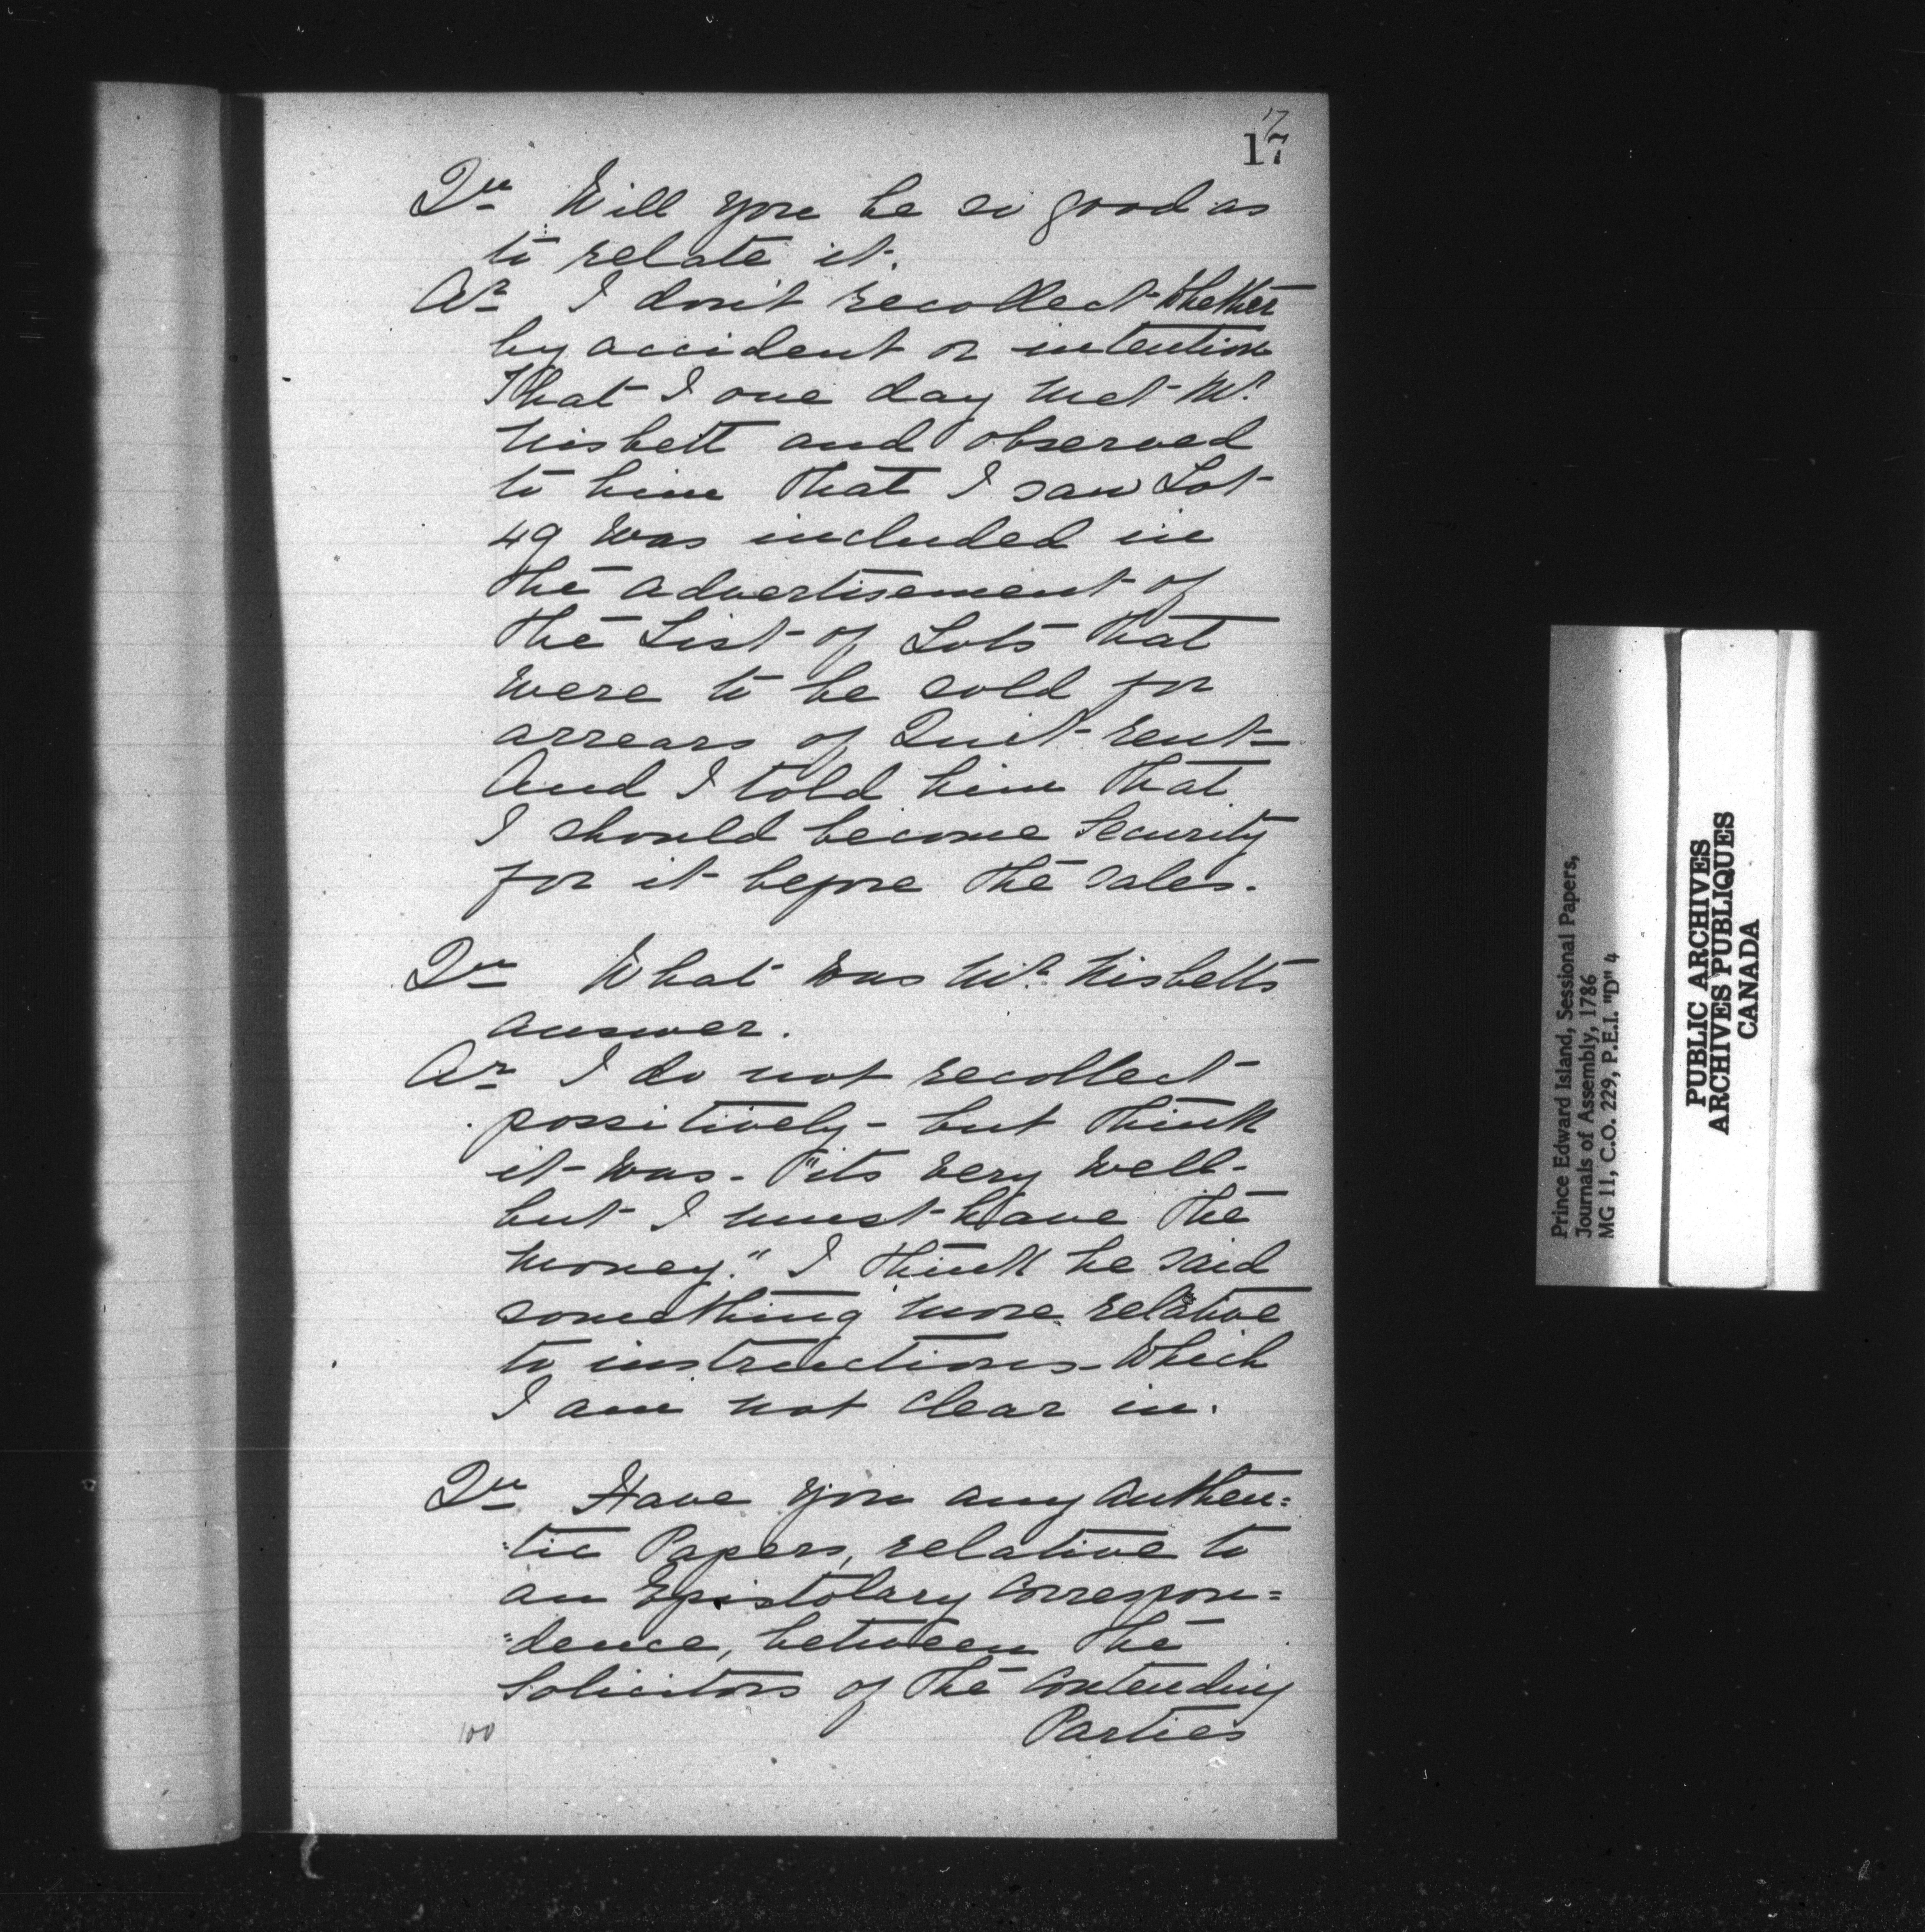 17
17
Qu Will you be so good as
to relate it.
Ar I don't recollect whether
by accident or intention
That I one day met Mr.
Nisbett and observed
to him that I saw Lot
49 was included in
the advertisement of
the List of Lots that
were to be sold for
arrears of Quit-rent-
And I told him that
I should become Security
for it before the sales.
Qu What was Mr. Nisbetts
answer.
Ar I do not recollect
possitively - but think
it was - "its very well-
but I must have the
money." I think he said
something more relative
to instructions - which
I am not clear in.
Qu Have you any authen=
=tic Papers, relative to
an Epistolary correspon=
=dence, between the
Solicitors of the contending
Parties
100
Prince Edward Island, Sessional Papers,
Journals of Assembly, 1786
MG 11, C.O. 229, P.E.I. "D" 4
PUBLIC ARCHIVES
ARCHIVES PUBLIQUES
CANADA